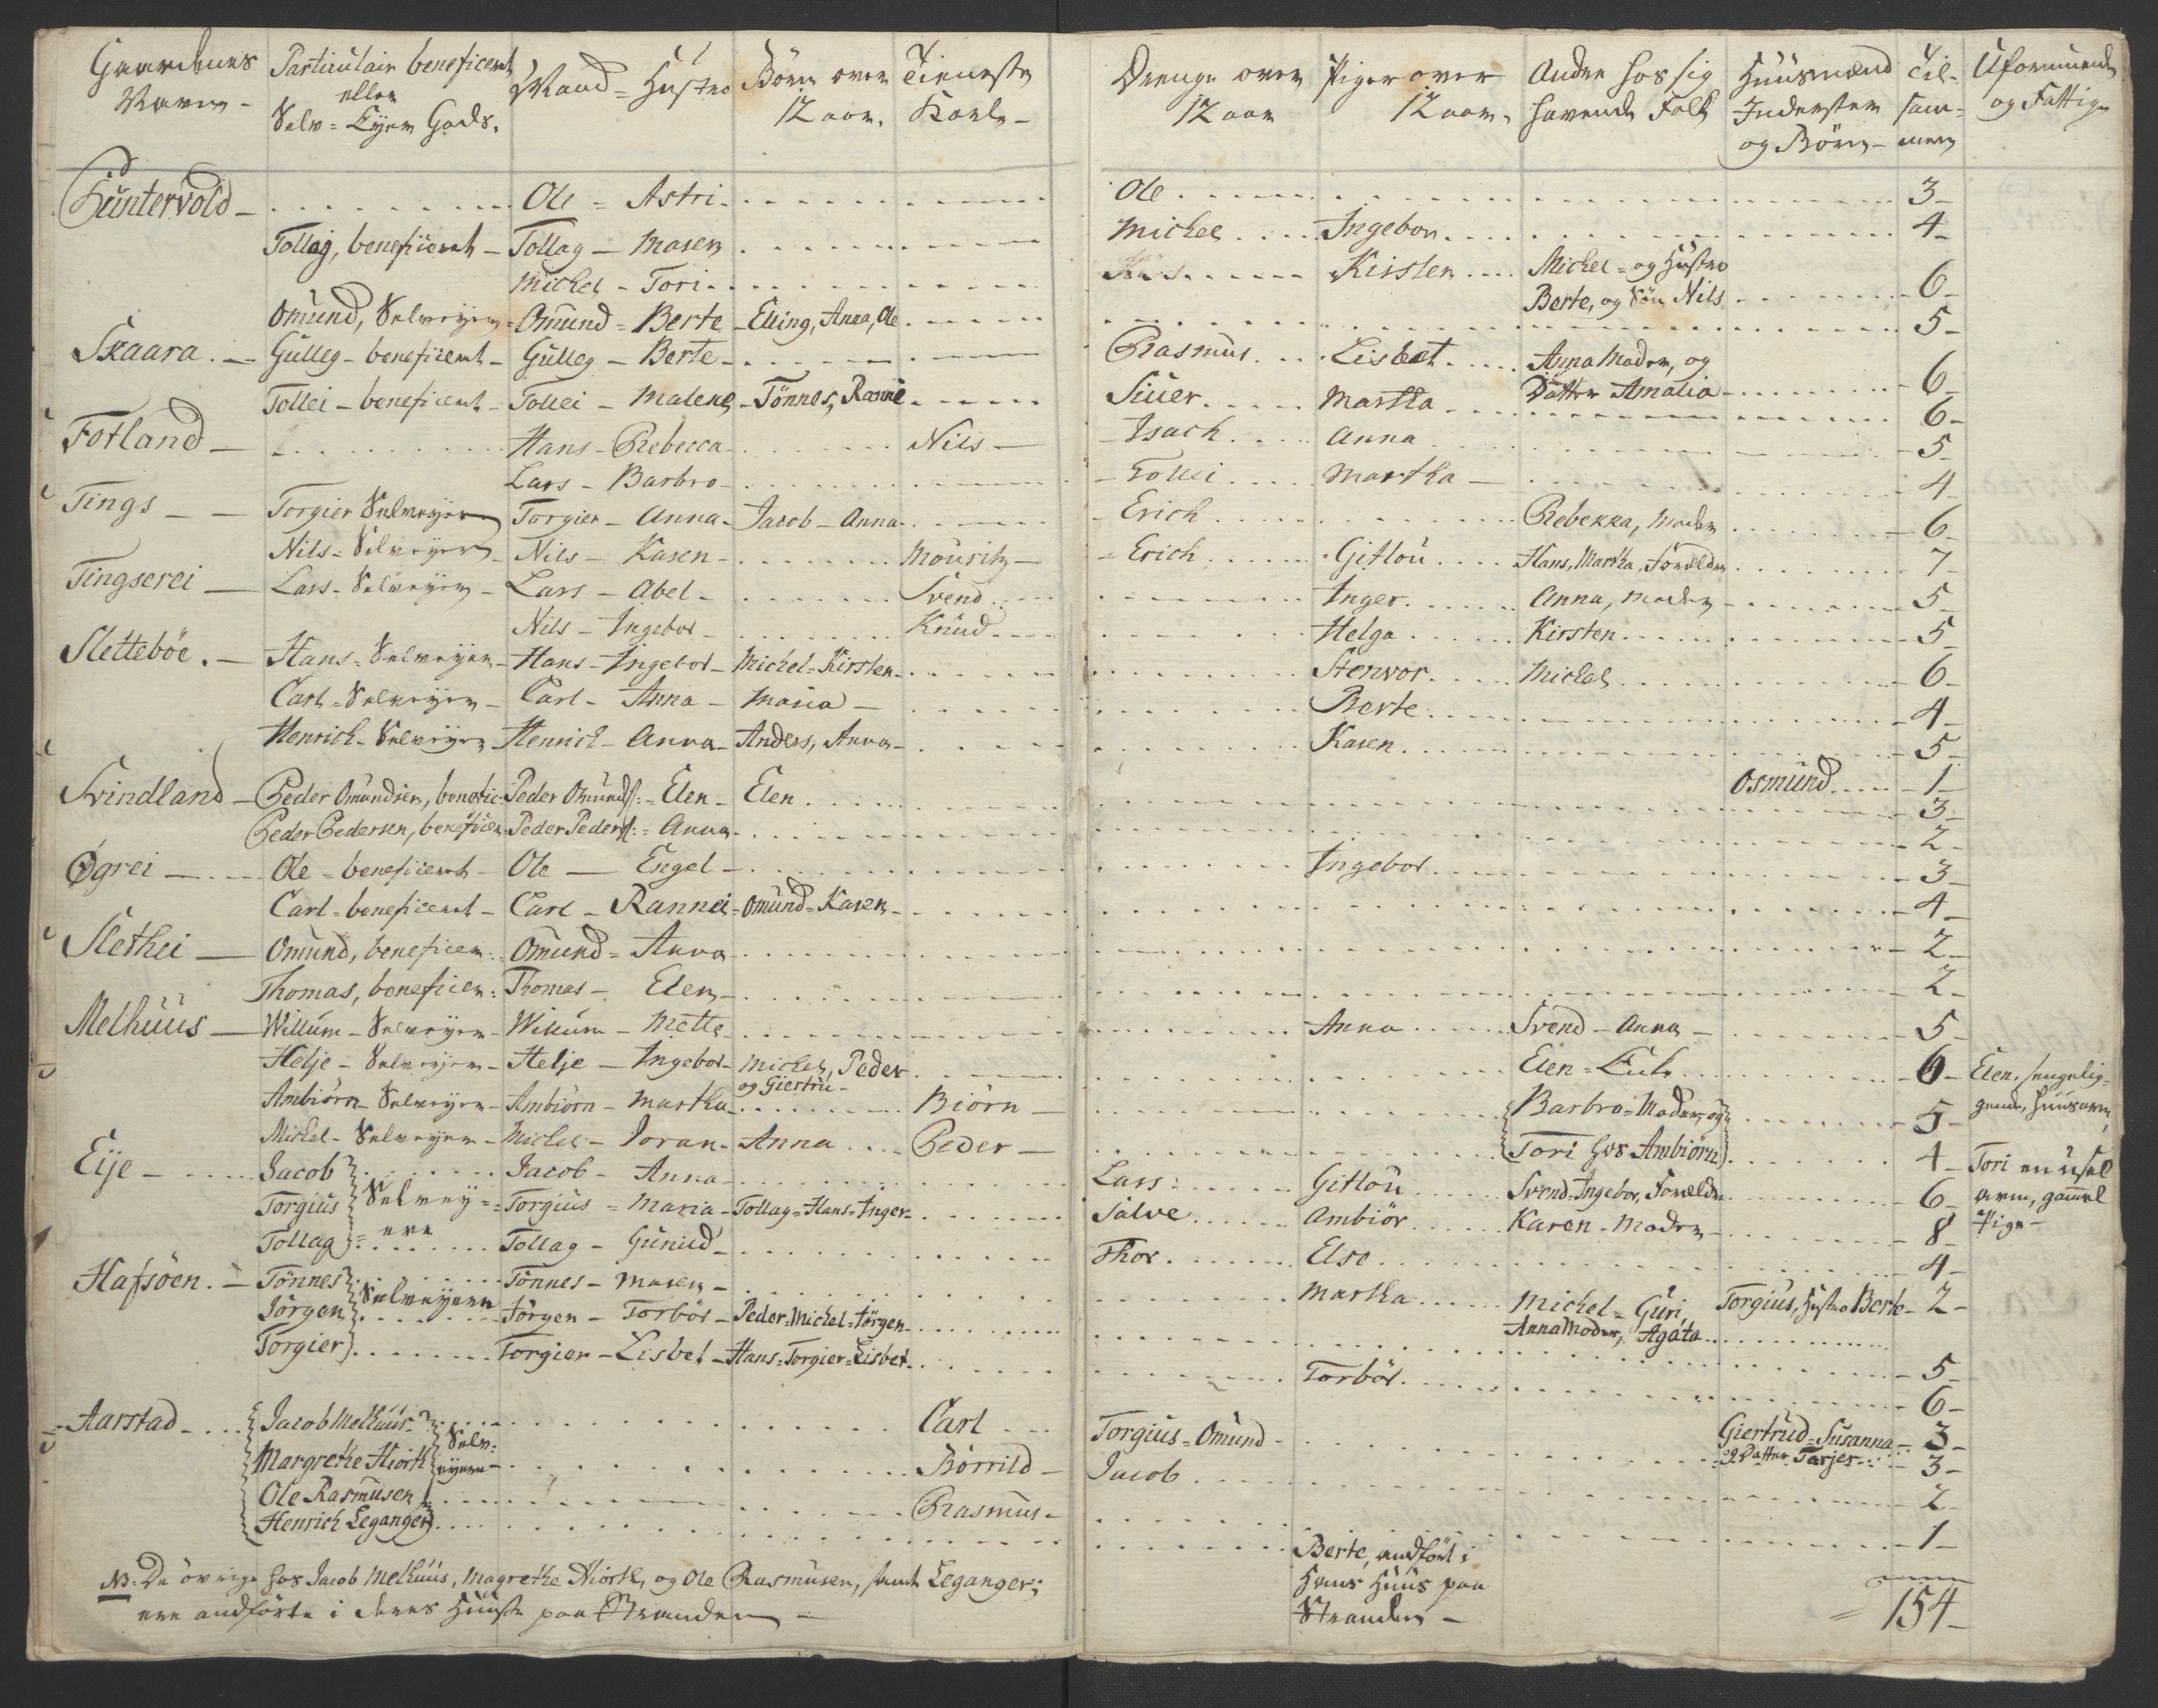 Gaardenes Navn - | Particulair beneficeret eller Selv=Eyer Gods. | Mand = Hustro | Börn over 12 aar. | Tieneste Karle - | Drenge over 12 aar | Piger over 12 aar. | Andre hos sig havende Folk | Huusmænd Inderster og Börn - | Til-sam-men | Uformuende og Fattige
Guntervold - | Ole = Astri | Ole | 3
Tollag, beneficeret - | Tollag - Maren | Michel | Ingebor | 4
Michel - Tori | Kirsten | Michel = og Hustro Berte, og Sön Nils | 6
Omund, Selveyer - | Omund = Berte | Elling, Anna, Ole | 5
Skaara. - | Gulleg - beneficeret - | Gulleg - Berte | Rasmus | Lisbet | Anna Moder, og Datter Amalia | 6
Tollei - beneficeret - | Tollei - Malene | Tönnes, Rannei | Siuer | Martha | 6
Fotland - | Hans - Rebecca | Nils | Isach | Anna | 5
Lars - Barbro | Tollei | Martha | 4
Tings - | Torgier Selveyer | Torgier - Anna | Jacob - Anna | Erich | Rebekka, Moder | 6
Nils = Selveyer | Nils - Karen | Mouritz | Erich | Gitlou | Hans, Martha, Forældre | 7
Tingserei - | Lars - Selveyer - | Lars - Abel | Svend | Inger | Anna, Moder | 5
Nils - Ingebor | Knud | Helga | Kirsten | 5
Sletteböe. - | Hans = Selveyer - | Hans - Ingebor | Michel = Kirsten | Stenvor | Michel | 6
Carl = Selveyer - | Carl - Anna | Maria | Berte | 4
Henrich - Selveyer | Henrich - Anna | Anders, Anna | Karen | 5
Osmund | 1
Svindland - | Peder Omundsen, benefic: | Peder Omunds: = Elen | Elen | 3
Peder Pedersen, beneficer: | Peder Peders: = Anna | 2
Øgrei - | Ole = beneficeret - | Ole - Engel | Ingebor | 3
Carl = beneficeret - | Carl - Rannei | Omund = Karen | 4
Slethei - | Omund, beneficer: | Omund = Anna | 2
Thomas, beneficer: | Thomas - Elen | 2
Melhuus - | Willum - Selveyer - | Willum - Mette | Anna | Svend - Anna | 5
Helje - Selveyer - | Helje - Ingebor | Michel, Peder og Giertru - | Elen = | 6 | Elen, sengelig-gende, Huusarm,
Ambiörn - Selveyer - | Ambiörn - Martha | Biörn | Barbro = Moder, og | 5
Michel - Selveyer - | Michel - Joran | Anna | Peder | Tori hos Ambiörn | 4 | Tori en usel arm, gammel Pige -
Eije - | Jacob | Jacob - Anna | Lars | Gitlou | Svend = Ingebor, Forældre | 6
Torgius | Selvey-ere | Torgius = Maria | Tollag = Hans = Inger | Salve | Ambiör | Karen - Moder | 8
Tollag | Tollag - Gunild | Thor | Else | 4
Hafsöen. - | Tönnes | Tönnes - Maren | Martha | Michel = Guri | Torgius, Hustro Berte | 2
Jörgen | Selveyere | Jörgen - Torbör | Peder = Michel = Jörgen | Anna Moder, Agata | 5
Torgier | Torgier - Lisbet | Hans = Torgier = Lisbet | Torbör | 6
Aarstad - | Jacob Melhuus | Carl | Torgius = Omund | Giertrud = Susanna | 3
Margrethe Hiorth | Selv-eyere | Börrild | Jacob | og Datter Tarjer | 3
Ole Rasmusen | Rasmus | 2
Henrich Leganger | Berte, andfört i Hans Huus paa Stranden - | 1
NB. De övrige hos Jacob Melhuus, Magrethe Hiorth, og Ole Rasmusen, samt Leganger;
ere andförte i deres Huuse paa Stranden -
= 154 -